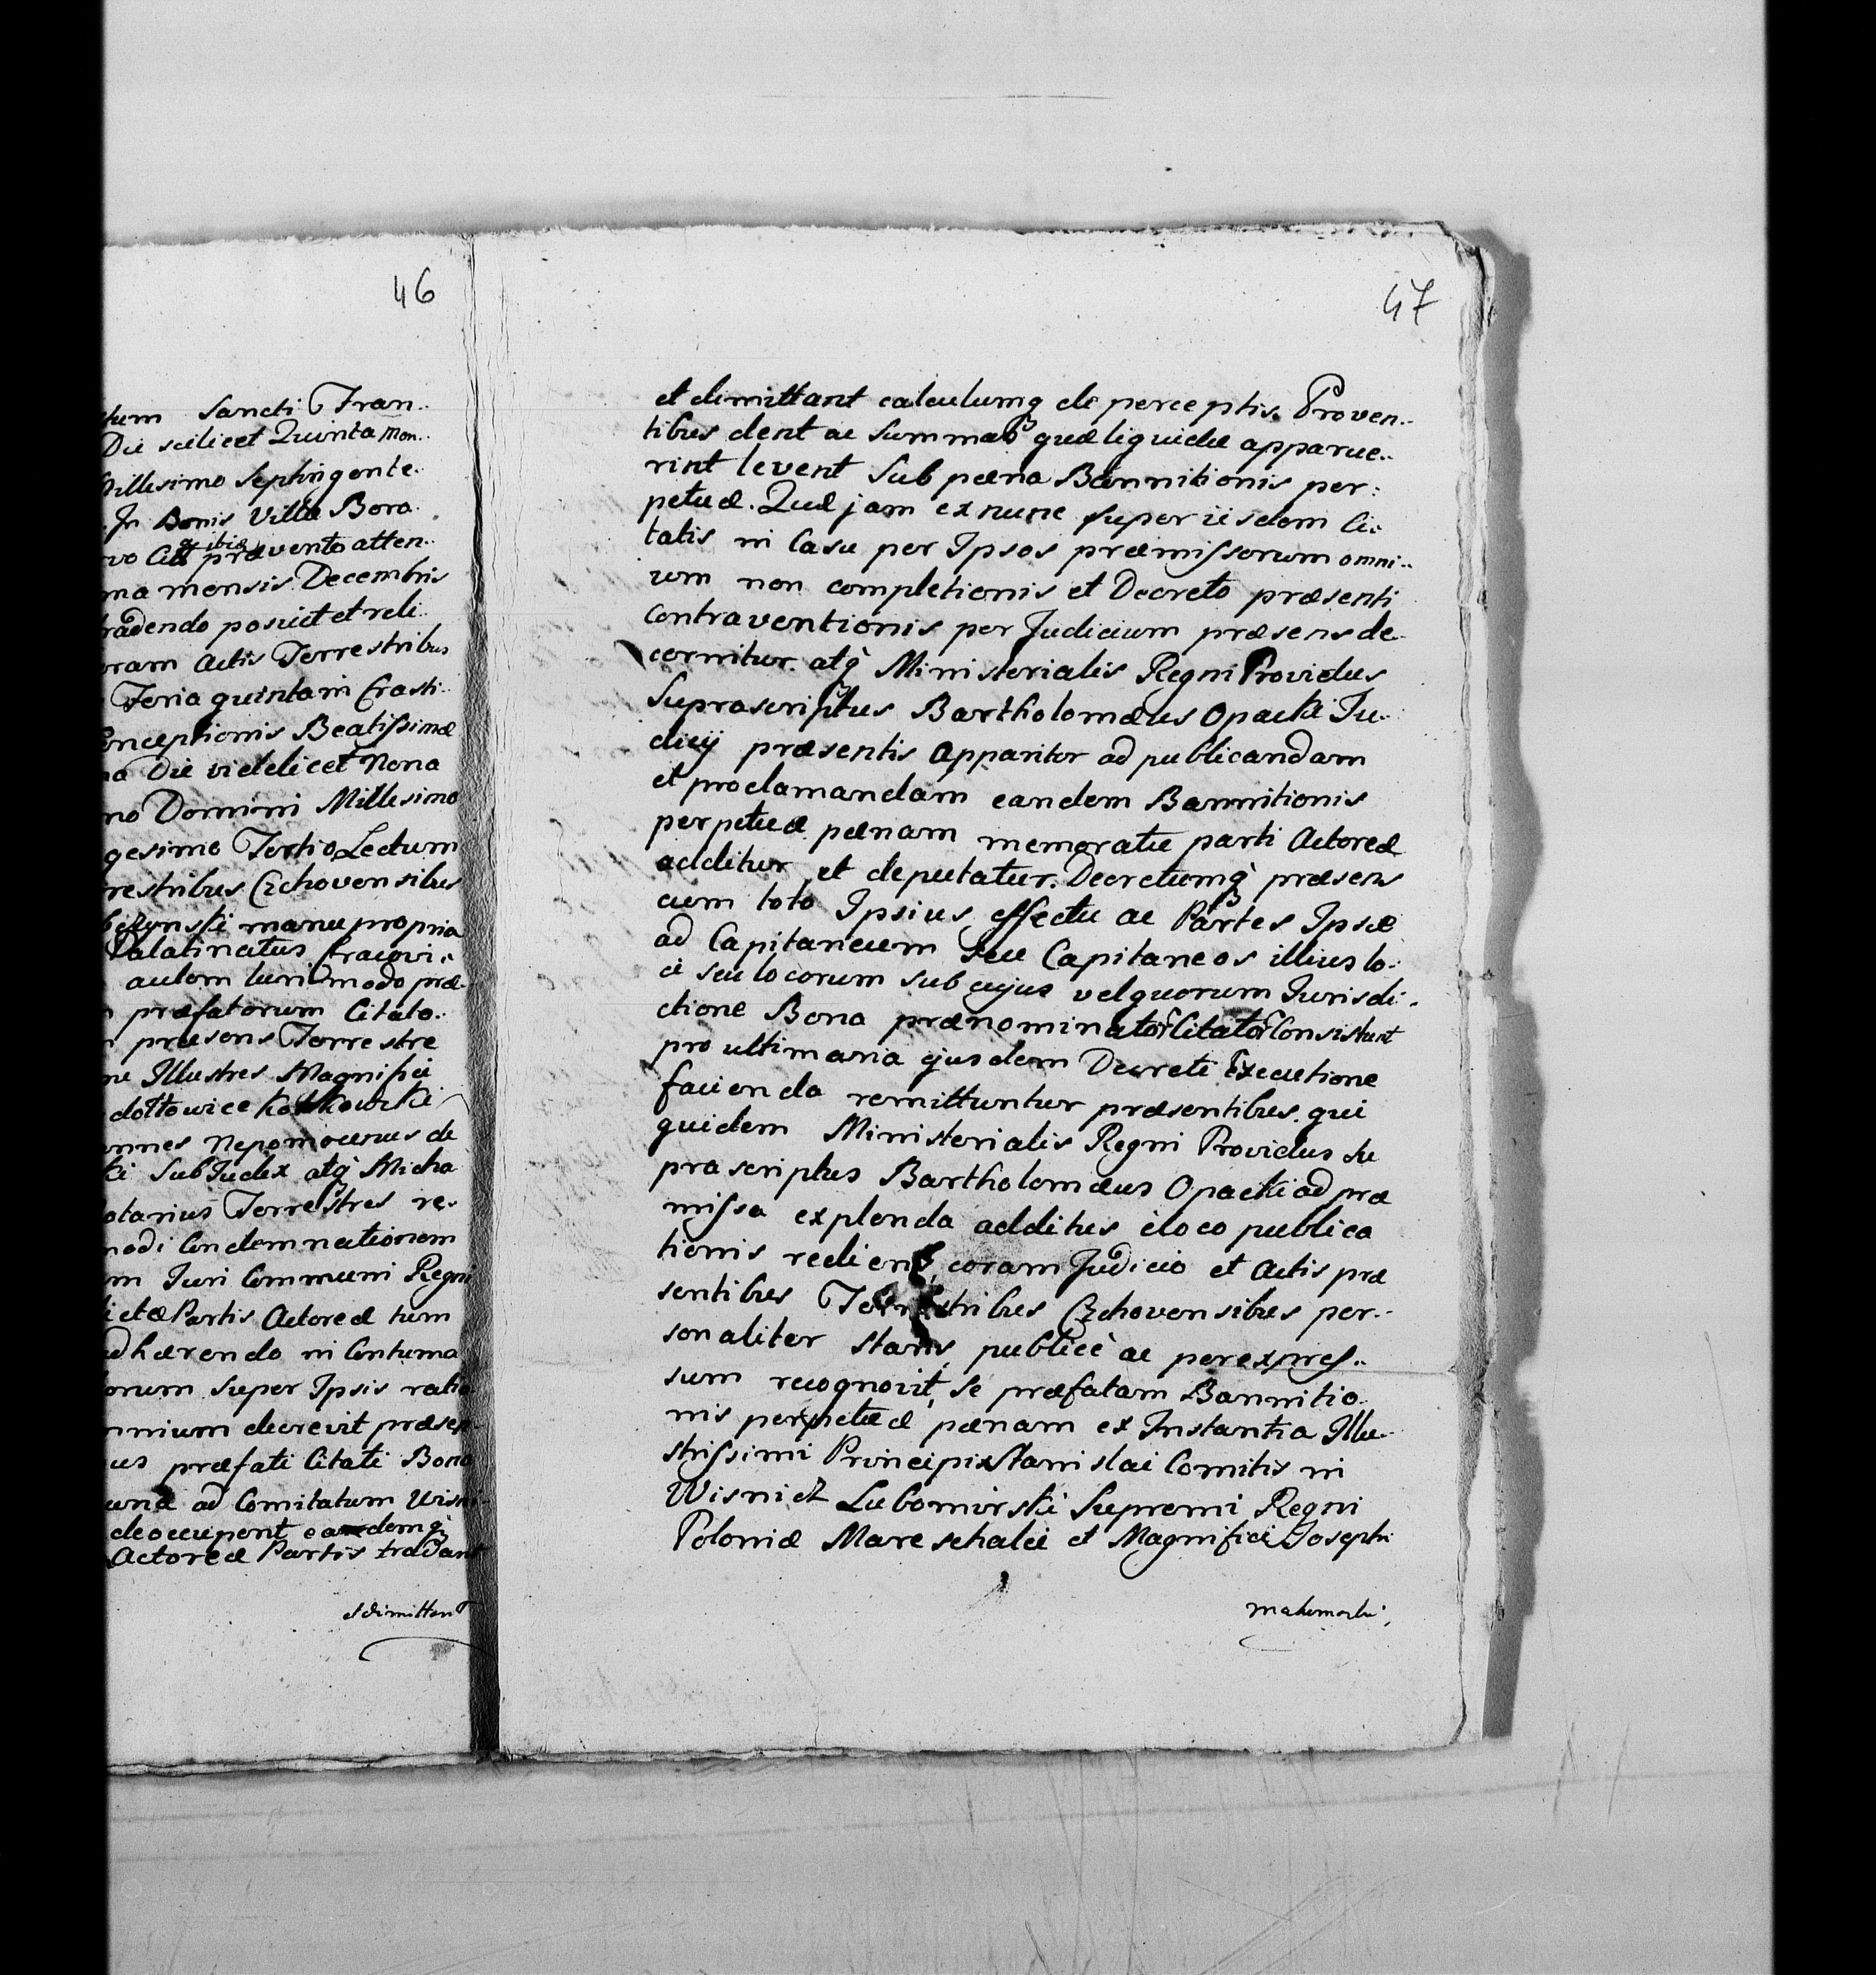 46
tum Sancti Fran..
Die scilicet Quinta Men..
Millesimo Septingente..
In Bonis Villa Bora.
prævento atten..
ma mensis Decembris
tradendo posuit et reli..
coram Actis Terrestribus
Feria quinta in Crasti..
Conceptionis Beatissimæ
Die videlicet Nona
no Domini Millesimo
gesimo Tertio Lectum
restribus Czchovensibus
manu propria
Palatinatus Cracovi..
autem humodo præ-
præfatorum Citato..
præsens Terrestre
Illustres Magnifici
Kotkowski
annes Nepomucenus de
ki SubJudex atq̃ Micha
Notarius Terrestres re-
modi Condemnationem
m Juri Communi Regni
ictæ Partis Actoreæ tum
adhærendo in Contuma
orum super Ipsis ratio
mnium decrevit præsen
us præfati Citati Bona
ad Comitatum Wisni-
deoccupent eademq̃
Actoreæ Partis tradant
et dimittant
47
et dimittant calculumq̃ de perceptis Proven..
tibus dent ac Summas quæ liquidæ apparue..
rint levent Sub pæna Bannitionis per:
petuæ. Quæ jam ex nunc super iisdem Ci:
tatis in Casu per Ipsos præmissorum omni..
um non completionis et Decreto præsenti
Contraventionis per Judicium præsens de-
cernitur. atq̃ Ministerialis Regni Providus
Suprascriptus Bartholomæus Opacki Ju-
dicij præsentis Apparitor ad publicandam
et proclamandam eandem Bannitionis
perpetuæ pænam memoratæ parti Actoreæ
additur et deputatur. Decretumq̃ præsens
cum toto Ipsius effectu ac Partes Ipsæ
ad Capitaneum seu Capitaneos illius lo-
ci seu locorum sub cujus vel quorum Jurisdi-
ctione Bona prænominator̃ Citator̃ Consistunt
pro ultimaria ejusdem Decreti Executione
facienda remittuntur præsentibus. qui
quidem Ministerialis Regni Providus Su
prascriptus Bartholomæus Opacki ad præ
missa explenda additus e loco publica
tionis rediens, coram Judicio et Actis præ
sentibus Terrestribus Czchovensibus per-
sonaliter stans, publicè ac per expres..
sum recognovit, Se præfatam Bannitio-
nis perpetuæ pænam ex Instantia Illu-
strissimi Principis Stanislai Comitis in
Wisnicz Lubomirski Supremi Regni
Poloniæ Mareschalci et Magnifici Josephi